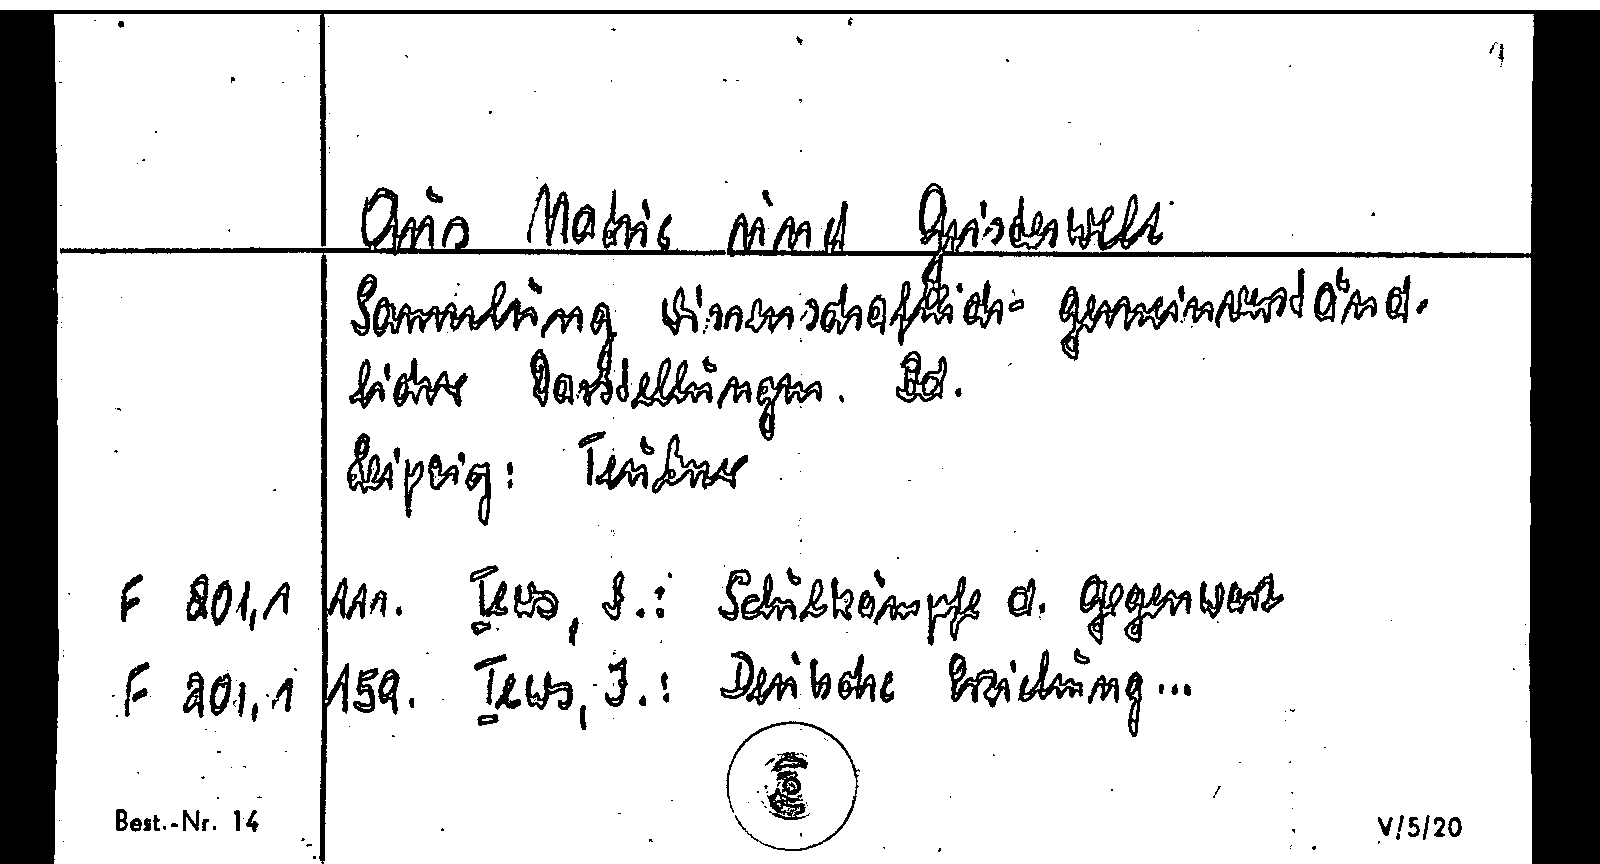 1
Aus Natur und Geisteswelt
Sammlung wissenschaftlich- gemeinverständ-
licher Darstellungen. Bd.
Leipzig: Teubner
F 201,1 111. Tews, J.: Schulkämpfe d. Gegenwart
F 201,1 159. Tews, J.: Deutsche Erziehung...
Best.-Nr. 14 V/5/20